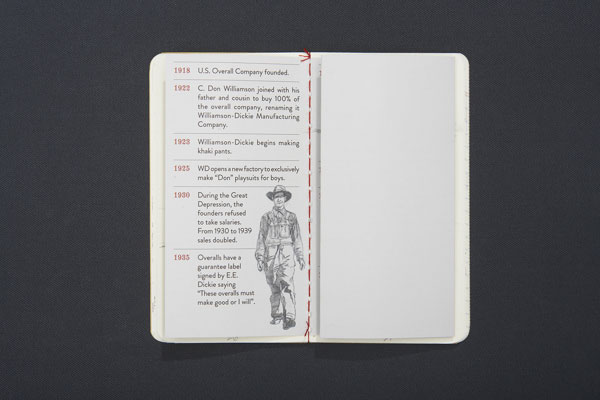 1918 U.S. Overall Company founded.
1922 C. Don Williamson joined with his
father and cousin to buy 100% of
the overall company, renaming it
Williamson-Dickie Manufacturing
Company.
1923 Williamson-Dickie begins making
khaki pants.
1925 WD opens a new factory to exclusively
make “Don” playsuits for boys.
1930 During the Great
Depression, the
founders refused
to take salaries.
From 1930 to 1939
sales doubled.
1935 Overalls have a
guarantee label
signed by E.E.
Dickie saying
“These overalls must
make good or I will”.